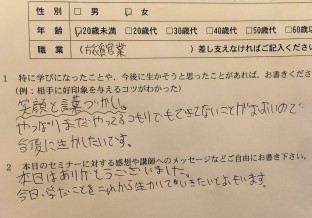 性 別 □ 男 ☑ 女
年 齢 ☑20歳未満 □20歳代 □30歳代 □40歳代 □50歳代 □60歳
職 業 (旅館営業 )差し支えなければご記入くださ
1 特に学びになったことや、今後に生かそうと思ったことがあれば、お書きくださ
(例:相手に好印象を与えるコツがわかった)
笑顔と言葉づかい。
やっぱりまだやってるつもりでもできてないことがおおいので
今後に生かしたいです。
2 本日のセミナーに対する感想や講師へのメッセージなどご自由にお書き下さい。
本日はありがとうございました。
今日、学んだことをこれから生かしていきたいとおもいます。